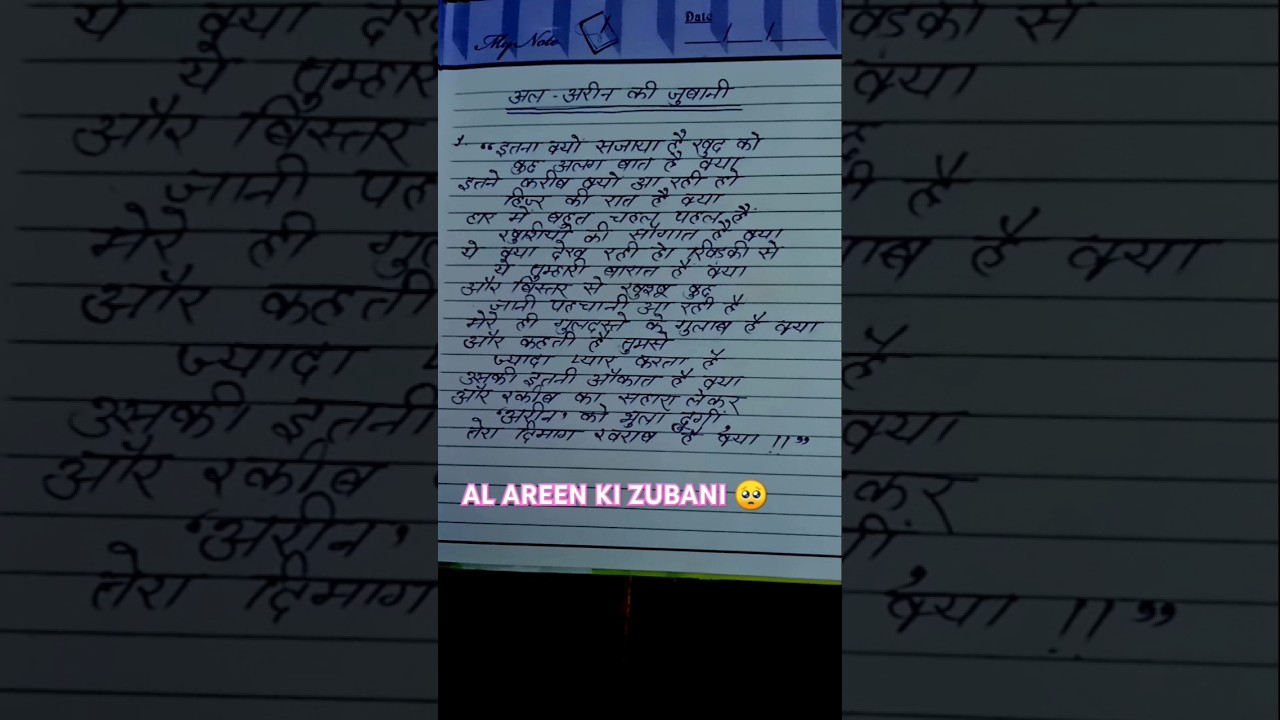 My Note
Date
अल - अरीन की जुबानी
1. “इतना क्यो सजाया है खुद को
कुछ अलग बात है क्या
इतने करीब क्यो आ रही हो
हिज्र की रात है क्या
घर में बहुत चहल पहल है
खुशीयो की सौगात है क्या
ये क्या देख रही हो खिडकी से
ये तुम्हारी बारात है क्या
और बिस्तर से खुश्बू कुछ
जानी पहचानी आ रही है
मेरे ही गुलदस्ते के गुलाब है क्या
और कहती है तुमसे
ज्यादा प्यार करता है
उसकी इतनी औकात है क्या
और रकीब का सहारा लेकर
'अरीन' को भुला दूगी
तेरा दिमाग खराब है क्या !!”
AL AREEN KI ZUBANI 🥺